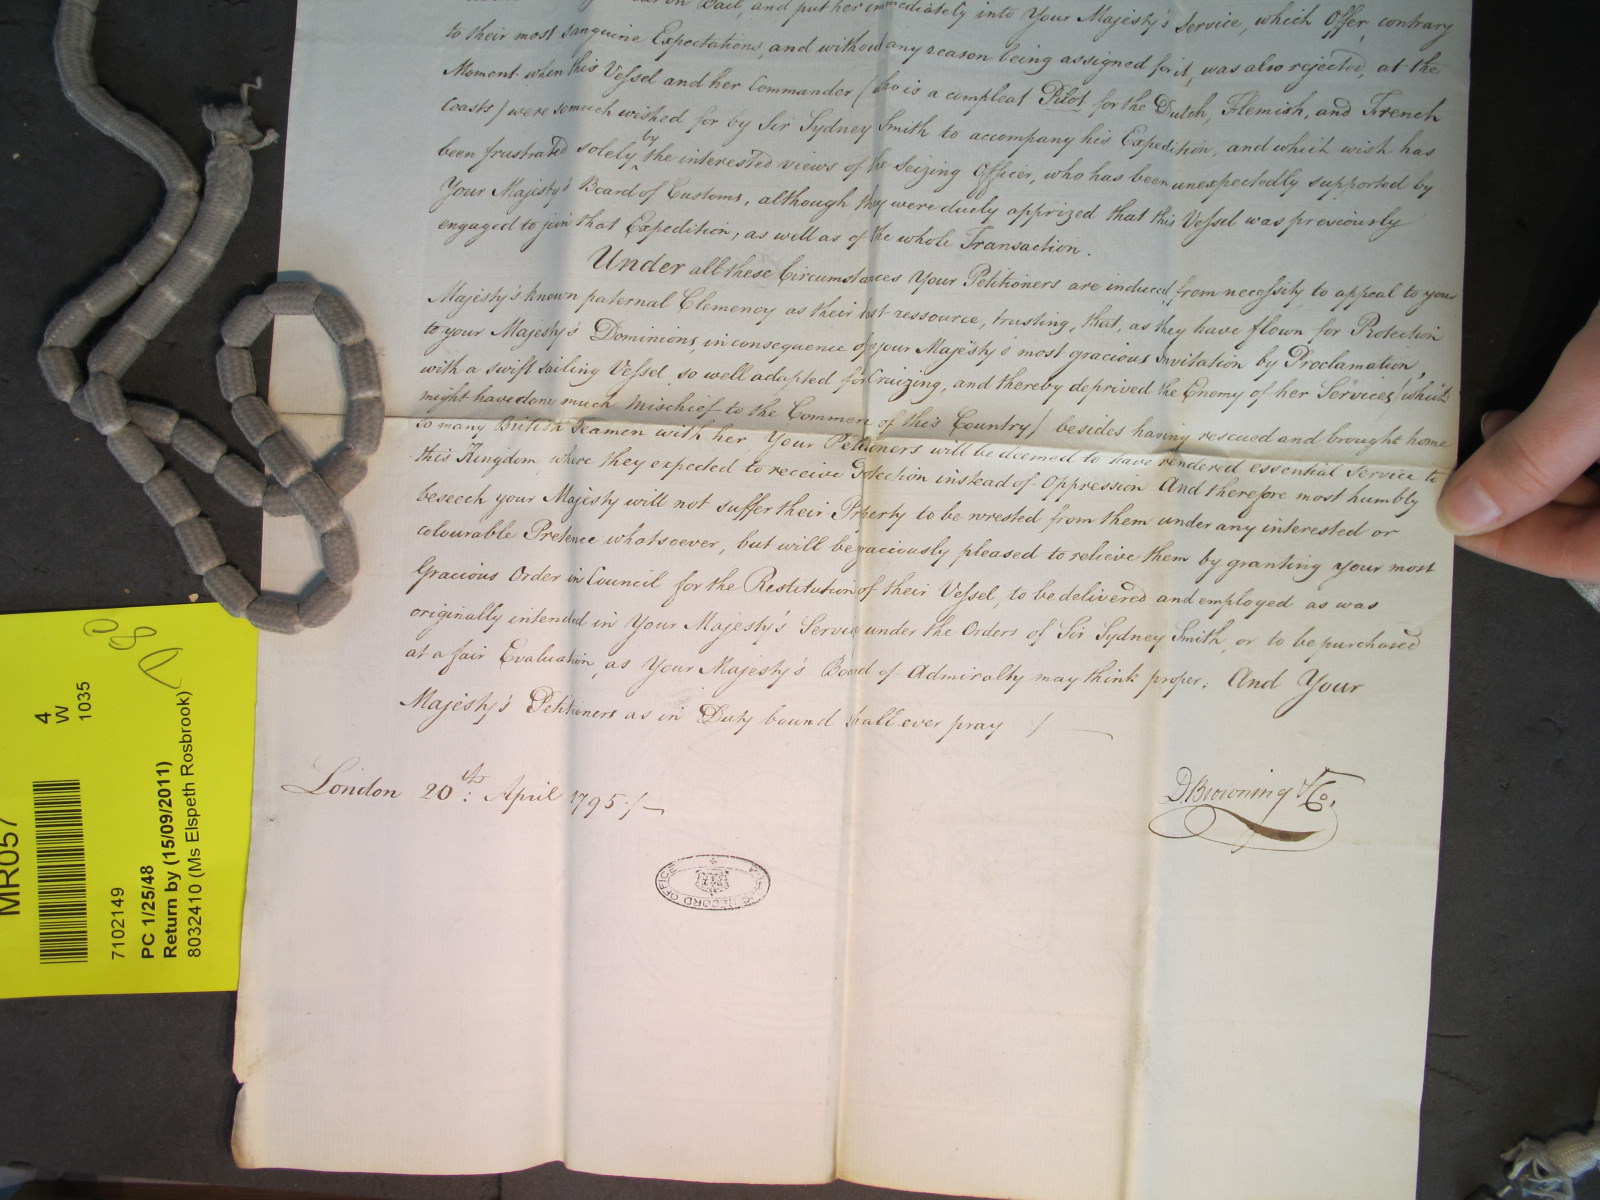 on Bail, and put her immediately into Your Majesty's Service, which Offer, contrary
to their most sanguine Expectations, and without any reason being assigned for it, was also rejected, at the
Moment when this Vessel and her Commander (who is a compleat Pilot for the Dutch, Flemish, and French
Coasts) were so much wished for by Sir Sydney Smith to accompany his Expedition, and which wish has
been frustrated solely by the interested views of the Seizing Officer, who has been unexpectedly supported by
Your Majesty's Board of Customs, although they were duely apprized that this Vessel was previously
engaged to join that Expedition, as well as of the whole Transaction.
Under all these Circumstances Your Petitioners are induced from necessity to appeal to your
Majesty's known paternal Clemency as their last ressource, trusting, that, as they have flown for Protection
to your Majesty's Dominions, in consequence of your Majesty's most gracious Invitation by Proclamation,
with a swift sailing Vessel so well adapted for Cruizing, and thereby deprived the Enemy of her Services (which
might have done much Mischief to the Commerce of this Country) besides having rescued and brought home
so many British Seamen with her, Your Petitioners will be deemed to have rendered essential Service to
this Kingdom, where they expected to receive Protection instead of Oppression And therefore most humbly
beseech your Majesty will not suffer their Property to be wrested from them under any interested or
colourable Pretence whatsoever, but will be graciously pleased to relieve them by granting your most
Gracious Order in Council for the Restitution of their Vessel, to be delivered and employed as was
originally intended in Your Majesty's Service under the Orders of Sir Sydney Smith, or to be purchased
at a fair Evaluation, as Your Majesty's Board of Admiralty may think proper; And Your
Majesty's Petitioners as in Duty bound shall ever pray /
London 20th: April 1795 :/
D. Browning & Co.
PUBLIC RECORD OFFICE
MR057
4
W
1035
7102149
PC 1/25/48
Return by (15/09/2011)
8032410 (Ms Elspeth Rosbrook)
D80